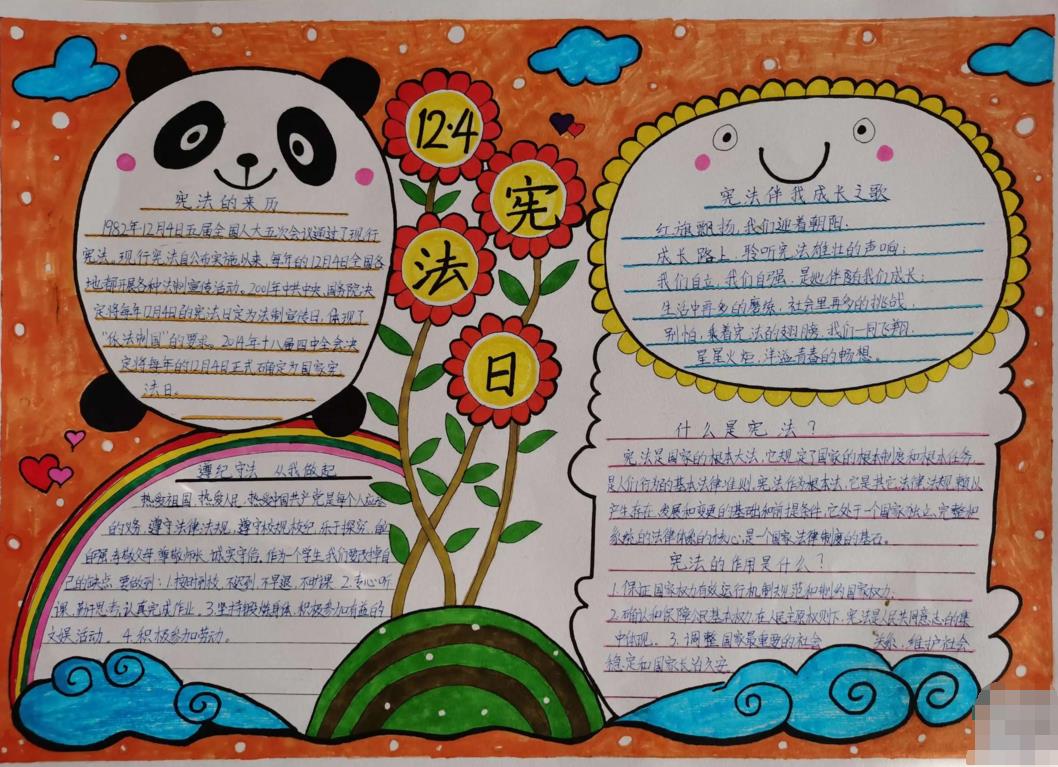 宪法的来历
1982年12月4日五届全国人大五次会议通过了现行
宪法。现行宪法自公布实施以来,每年的12月4日全国各
地都开展各种法制宣传活动。2001年中共中央、国务院决
定将每年12月4日的宪法日定为法制宣传日,体现了
“依法制国”的要求。2014年十八届四中全会决
定将每年的12月4日正式确定为国家宪
法日。
12·4
宪
法
日
宪法伴我成长之歌
红旗飘扬,我们迎着朝阳.
成长路上,聆听宪法雄壮的声响;
我们自立,我们自强,是她伴随我们成长;
生活中再多的磨练,社会里再多的挑战,
别怕,乘着宪法的翅膀,我们一同飞翔.
星星火炬,洋溢青春的畅想。
遵纪守法 从我做起
热爱祖国,热爱人民,热爱中国共产党是每个人应尽
的义务,遵守法律法规,遵守校规校纪,乐于探究,自
自强,孝敬父母,尊敬师长,诚实守信。作为个学生,我们要改掉自
己的缺点,要做到:1.按时到校,不迟到,不早退,不旷课.2.专心听
课,勤于思考,认真完成作业。3.坚持锻炼身体,积极参加有益的
文娱活动。4.积极参加劳动。
什么是宪法?
宪法是国家的根本大法,它规定了国家的根本制度和根本任务,
是人们行为的基本法律准则.宪法作为根本法,它是其它法律法规赖以
产生存在、发展和变更的基础和前提条件,它处于一个国家独立、完整和
系统的法律体系的核心,是一个国家法律制度的基石。
宪法的作用是什么?
1.保证国家权力有效运行机制规范和制约国家权力.
2.确认和保障公民基本权力.在人民主原权则下,宪法是人民共同意志的集
中体现。3.调整国家最重要的社会 关系,维护社会
稳定和国家长治久安